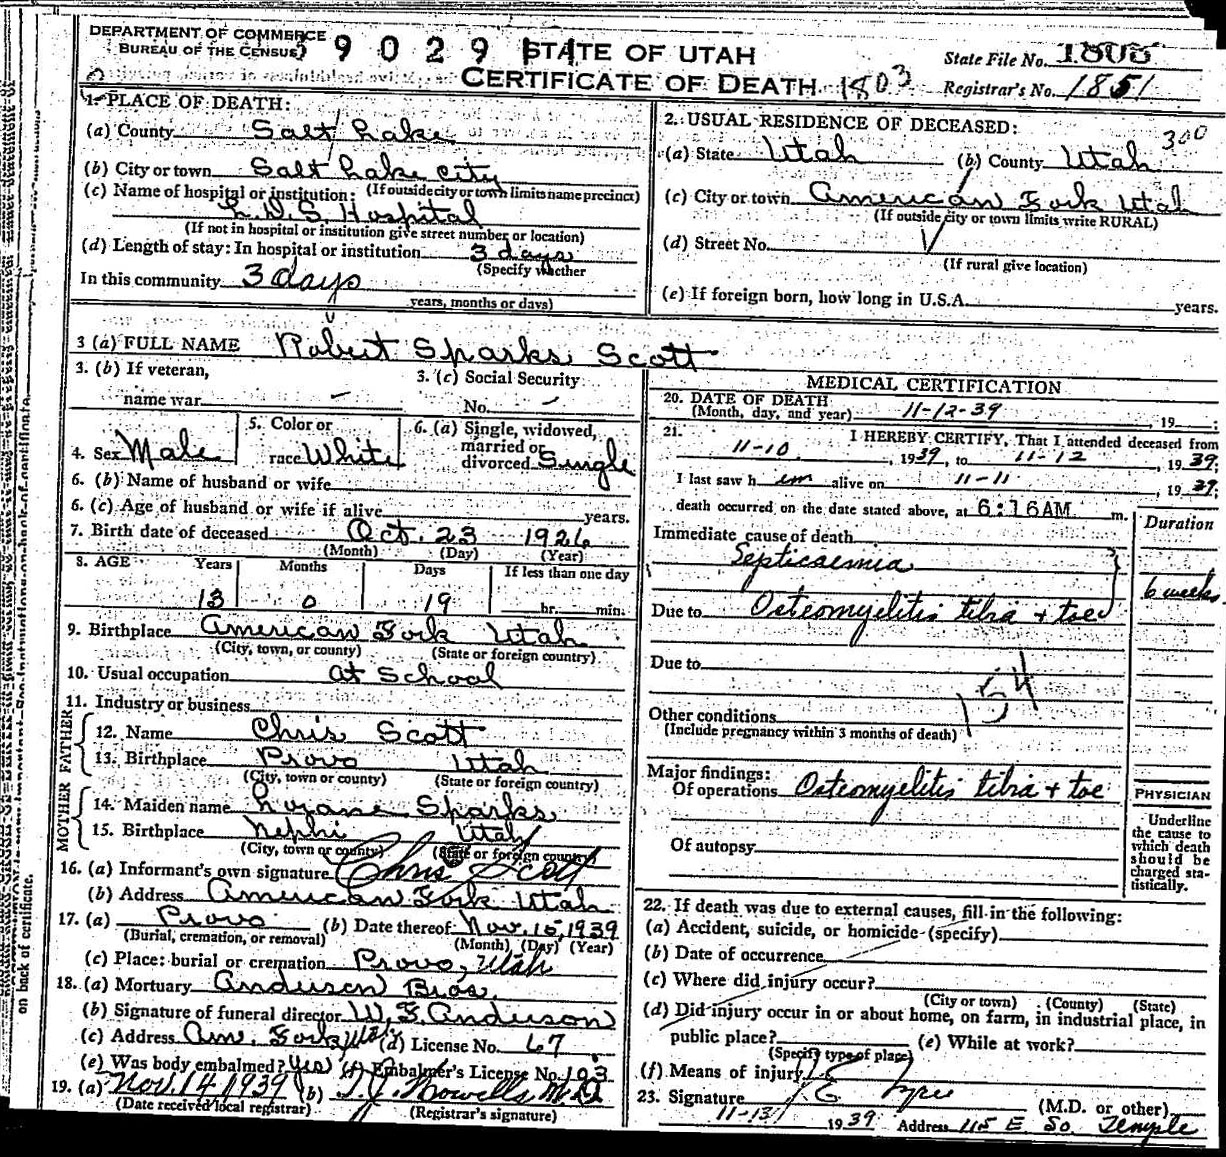 DEPARTMENT OF COMMERCE
BUREAU OF THE CENSUS
3 9 0 2 9
STATE OF UTAH
CERTIFICATE OF DEATH
1803
State File No. 1805
Registrar's No. 1851
1. PLACE OF DEATH:
(a) County Salt Lake
(b) City or town Salt Lake City
(c) Name of hospital or institution: (If outside city or town limits name precinct)
L.D.S. Hospital
(If not in hospital or institution give street number or location)
(d) Length of stay: In hospital or institution 3 days
(Specify whether
In this community 3 days
years, months or days)
2. USUAL RESIDENCE OF DECEASED:
300
(a) State Utah (b) County Utah
(c) City or town American Fork Utah
(If outside city or town limits write RURAL)
(d) Street No.
(If rural give location)
(e) If foreign born, how long in U.S.A. years.
3 (a) FULL NAME Robert Sparks Scott
3. (b) If veteran, name war –
3. (c) Social Security No. –
4. Sex Male
5. Color or race White
6. (a) Single, widowed, married or divorced Single
6. (b) Name of husband or wife
6. (c) Age of husband or wife if alive years.
7. Birth date of deceased Oct. 23 1926
(Month) (Day) (Year)
8. AGE Years Months Days If less than one day
13 0 19 hr. min.
9. Birthplace American Fork Utah
(City, town, or county) (State or foreign country)
10. Usual occupation At School
11. Industry or business
FATHER
12. Name Chris Scott
13. Birthplace Provo Utah
(City, town or county) (State or foreign country)
MOTHER
14. Maiden name Sparks
15. Birthplace Nephi Utah
(City, town or county) (State or foreign country)
16. (a) Informant's own signature Chris Scott
(b) Address American Fork Utah
17. (a) Provo (b) Date thereof Nov. 15, 1939
(Burial, cremation, or removal) (Month) (Day) (Year)
(c) Place: burial or cremation Provo, Utah
18. (a) Mortuary Anderson Bros.
(b) Signature of funeral director W. F. Anderson
(c) Address Am. Fork Utah (d) License No. 67
(e) Was body embalmed? Yes (f) Embalmer's License No. 103
19. (a) Nov. 14 1939 (b) T. J. Howells M.D.
(Date received local registrar) (Registrar's signature)
MEDICAL CERTIFICATION
20. DATE OF DEATH
(Month, day, and year) 11-12-39 , 19 ;
21. I HEREBY CERTIFY, That I attended deceased from
11-10 , 1939, to 11-12 , 1939;
I last saw h em alive on 11-11 , 1939;
death occurred on the date stated above, at 6:16AM m.
Duration
Immediate cause of death
Septicaemia
6 weeks
Due to Osteomyelitis tibia + toe
Due to
154
Other conditions
(Include pregnancy within 3 months of death)
Major findings:
Of operations Osteomyelitis tibia + toe
Of autopsy
PHYSICIAN
Underline
the cause to
which death
should be
charged sta-
tistically.
22. If death was due to external causes, fill in the following:
(a) Accident, suicide, or homicide (specify)
(b) Date of occurrence
(c) Where did injury occur?
(City or town) (County) (State)
(d) Did injury occur in or about home, on farm, in industrial place, in
public place? (e) While at work?
(Specify type of place)
(f) Means of injury
23. Signature Tyree
(M.D. or other)
11-13 1939 Address 115 E. So. Temple
on back of certificate.